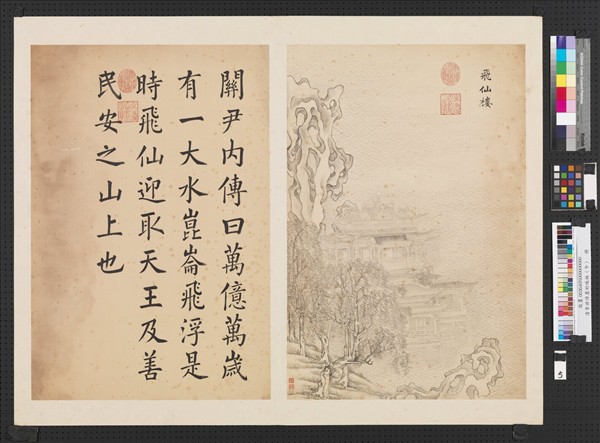 飛仙樓
關尹內傳曰萬億萬歲
有一大水崑崙飛浮是
時飛仙迎取天王及善
民安之山上也
5